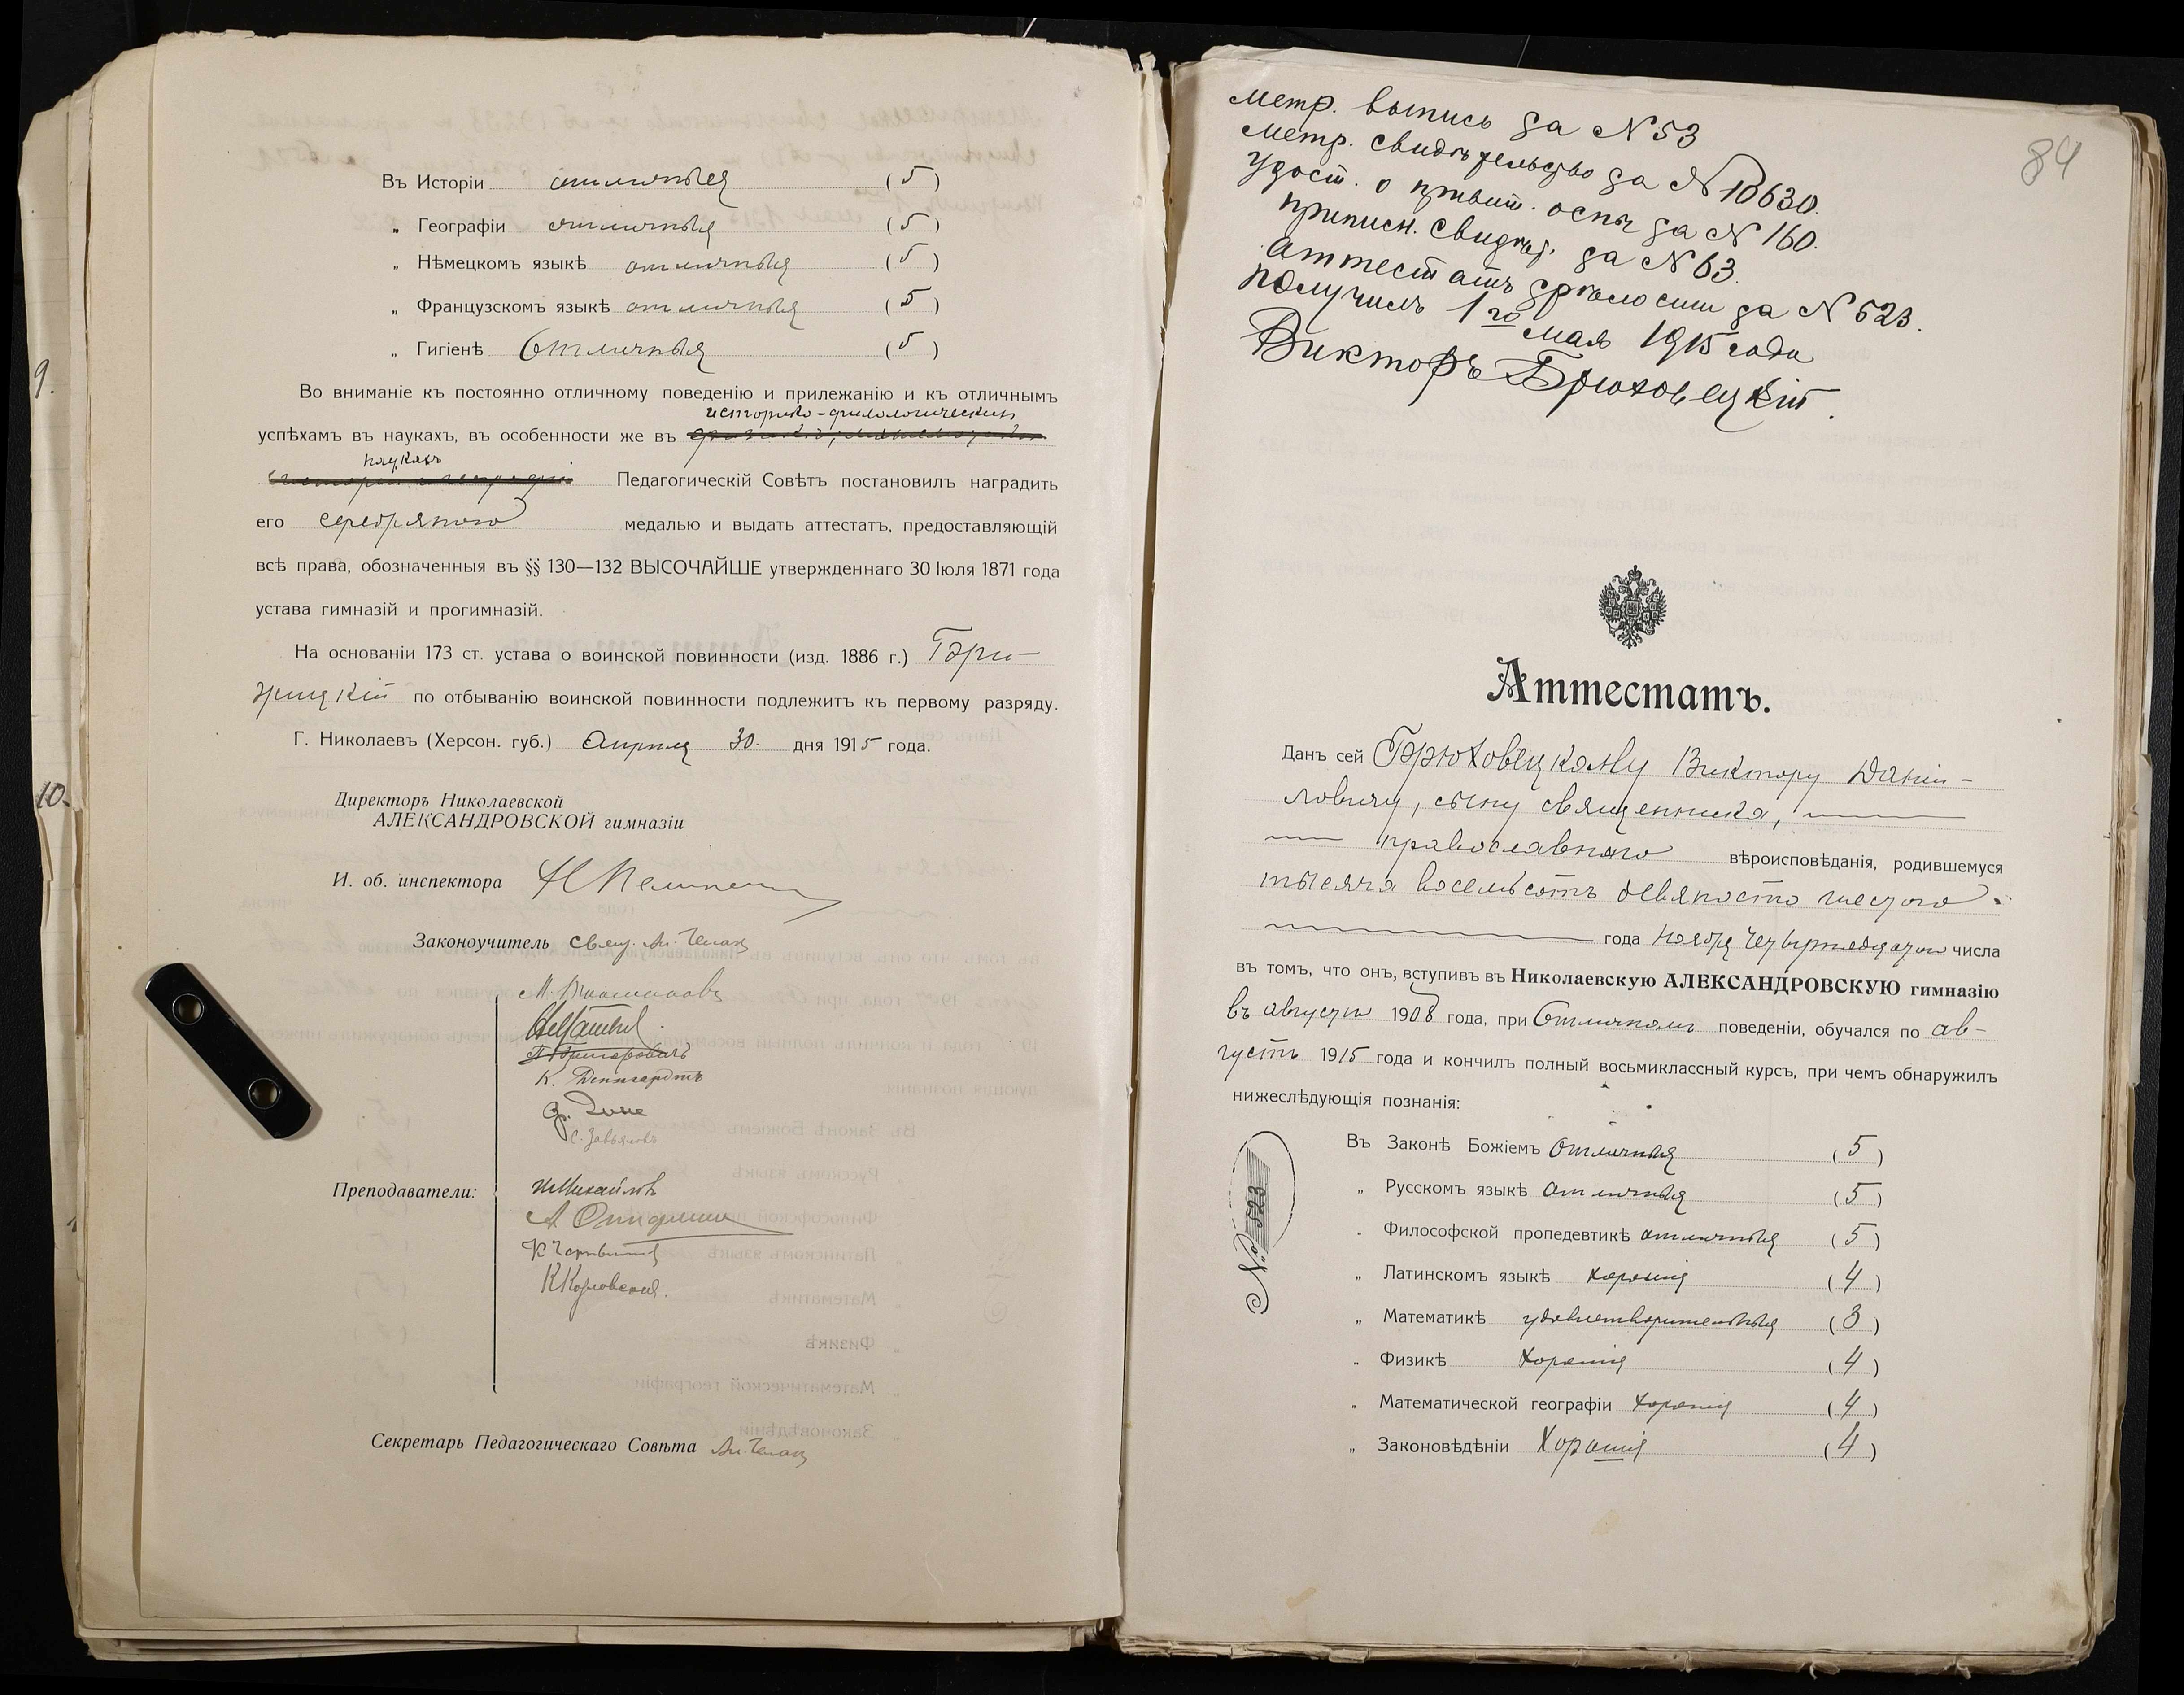 9.
10.
Въ Исторіи отличныя (5)
„ Географіи отличныя (5)
„ Нѣмецкомъ языкѣ отличныя (5)
„ Французскомъ языкѣ отличныя (5)
„ Гигіенѣ Отличныя (5)
Во вниманіе къ постоянно отличному поведенію и прилежанію и къ отличнымъ
историко-филологическихъ
успѣхамъ въ наукахъ, въ особенности же въ
наукахъ
Педагогическій Совѣтъ постановилъ наградить
его серебряною медалью и выдать аттестатъ, предоставляющій
всѣ права, обозначенныя въ §§ 130—132 ВЫСОЧАЙШЕ утвержденнаго 30 Іюля 1871 года
устава гимназій и прогимназій.
На основаніи 173 ст. устава о воинской повинности (изд. 1886 г.)
по отбыванію воинской повинности подлежитъ къ первому разряду.
Г. Николаевъ (Херсон. губ.) Апрѣля 30. дня 1915 года.
Директоръ Николаевской
АЛЕКСАНДРОВСКОЙ гимназіи
И. об. инспектора
Законоучитель свящ. Ал.
К.
С. Завьяловъ
Преподаватели:
И Михайловъ
Секретарь Педагогическаго Совѣта Ал.
84
Метр. выпись за N 53
Метр. свидѣтельство за N 10630.
Удост. о привит. оспы за N 160.
приписн. свидѣт. за N 63.
Аттестатъ зрѣлости за N 523.
получилъ 1го мая 1915 года
Викторъ Брюховецкій.
Аттестатъ.
Данъ сей Брюховецкому Виктору Даніи-
ловичу, сыну священника,
православнаго вѣроисповѣданія, родившемуся
тысяча восемьсотъ девяносто шестого
года ноября четырнадцатаго числа
въ томъ, что онъ, вступивъ въ Николаевскую АЛЕКСАНДРОВСКУЮ гимназію
въ августѣ 1908 года, при Отличномъ поведеніи, обучался по ав-
густъ 1915 года и кончилъ полный восьмиклассный курсъ, при чемъ обнаружилъ
нижеслѣдующія познанія:
№ 523
Въ Законѣ Божіемъ Отличныя (5)
„ Русскомъ языкѣ Отличныя (5)
„ Философской пропедевтикѣ отличныя (5)
„ Латинскомъ языкѣ хорошія (4)
„ Математикѣ удовлетворительныя (3)
„ Физикѣ хорошія (4)
„ Математической географіи хорошія (4)
„ Законовѣдѣніи Хорошія (4)